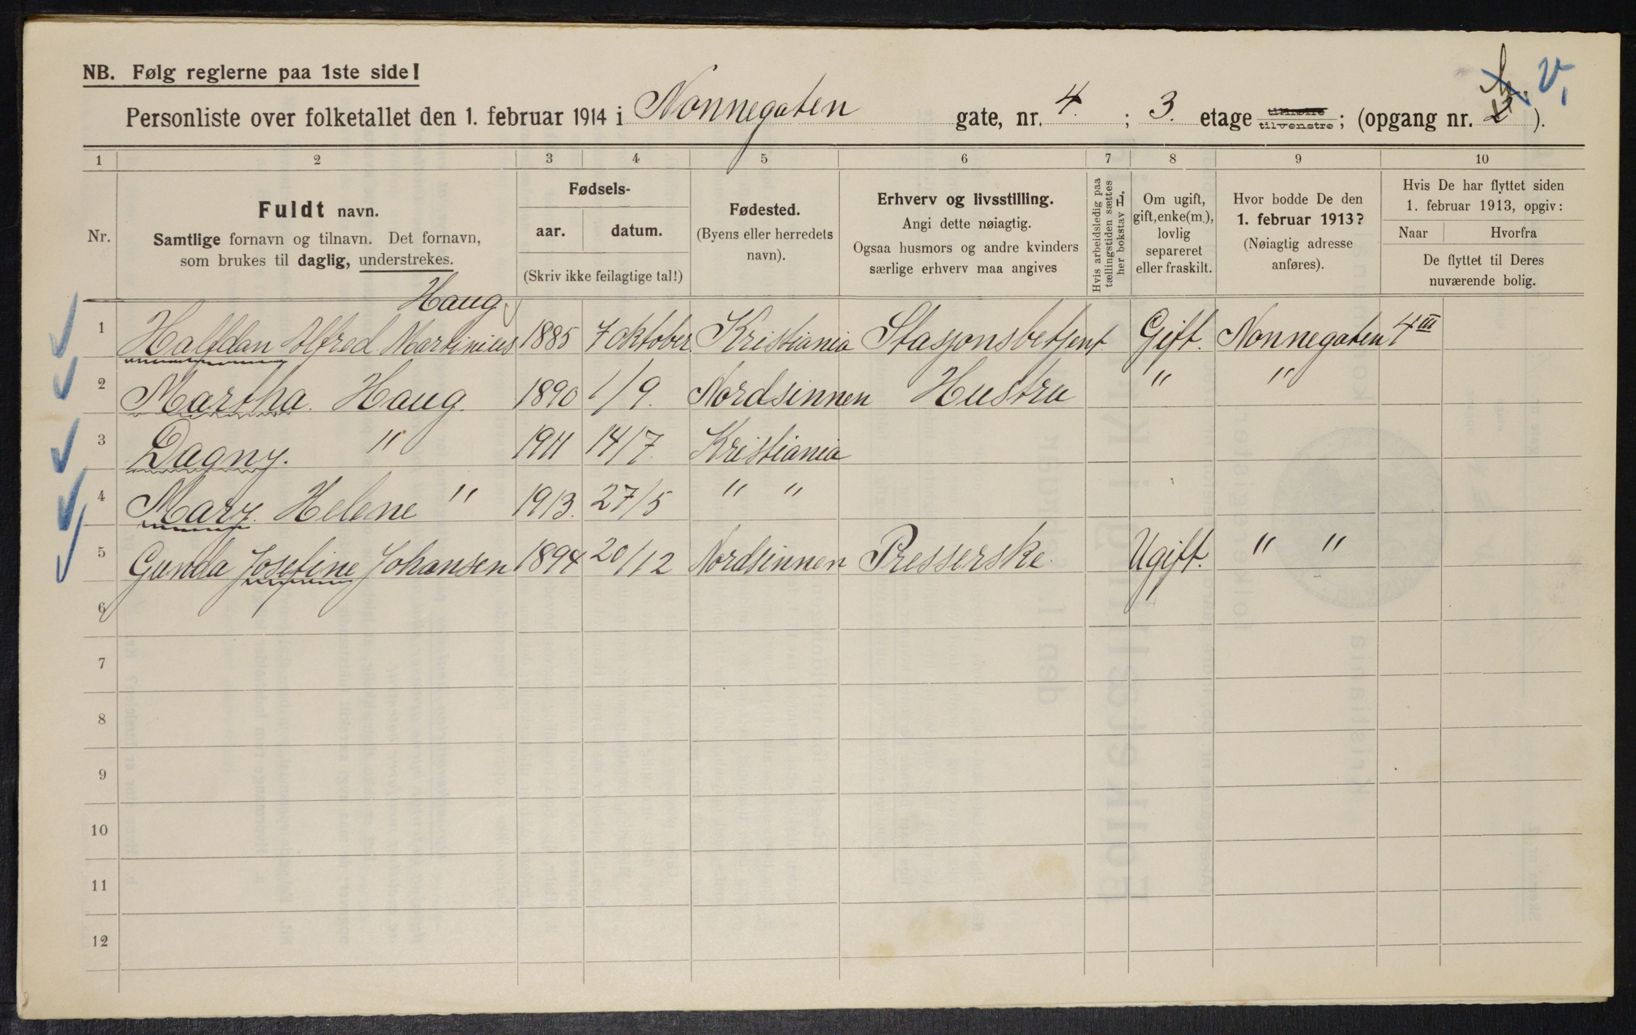 NB. Følg reglerne paa 1ste side!
Personliste over folketallet den 1. februar 1914 i Nonnegaten gate, nr. 4. ; 3. etage tilhøire tilvenstre ; (opgang nr. 2 ). v.
1 2 3 4 5 6 7 8 9 10
Nr.
Fuldt navn.
Samtlige fornavn og tilnavn. Det fornavn,
som brukes til daglig, understrekes.
Fødsels-
aar. datum.
(Skriv ikke feilagtige tal!)
Fødested.
(Byens eller herredets
navn).
Erhverv og livsstilling.
Angi dette nøiagtig.
Ogsaa husmors og andre kvinders
særlige erhverv maa angives
Hvis arbeidsledig paa
tællingstiden sættes
her bokstav L.
Om ugift,
gift, enke(m.),
lovlig
separeret
eller fraskilt.
Hvor bodde De den
1. februar 1913?
(Nøiagtig adresse
anføres).
Hvis De har flyttet siden
1. februar 1913, opgiv:
Naar Hvorfra
De flyttet til Deres
nuværende bolig.
Haug
1 Halfdan Alfred Martinius 1885 7 oktober Kristiania Stasjonsbetjent Gift. Nonnegaten 4 III
2 Martha. Haug. 1890 1/9. Nordsinnen Hustru " "
3 Dagny. " 1911 14/7. Kristiania
4 Mary. Helene " 1913. 27/5 " "
5 Gunda Josefine Johansen 1894 20/12 Nordsinnen Presserske. Ugift. " "
6
7
8
9
10
11
12